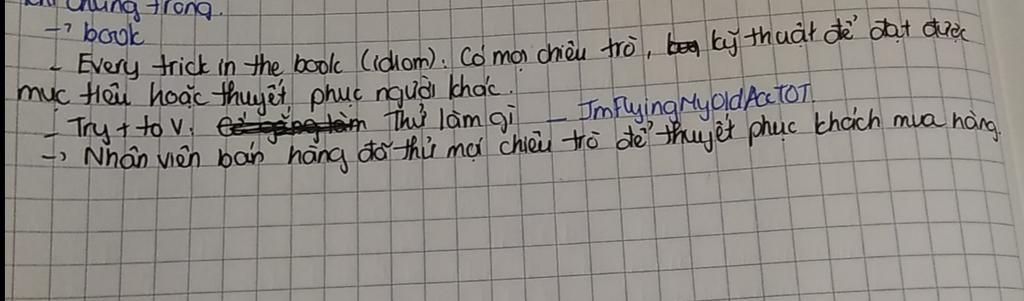 chung trong.
→ book
- Every trick in the book (idiom): Có mọi chiêu trò, kỹ thuật để đạt được
mục tiêu hoặc thuyết phục người khác.
- Try + to V: Thử làm gì - ImFlyingMyOldAccTOT
→ Nhân viên bán hàng đó thử mọi chiêu trò để thuyết phục khách mua hàng.